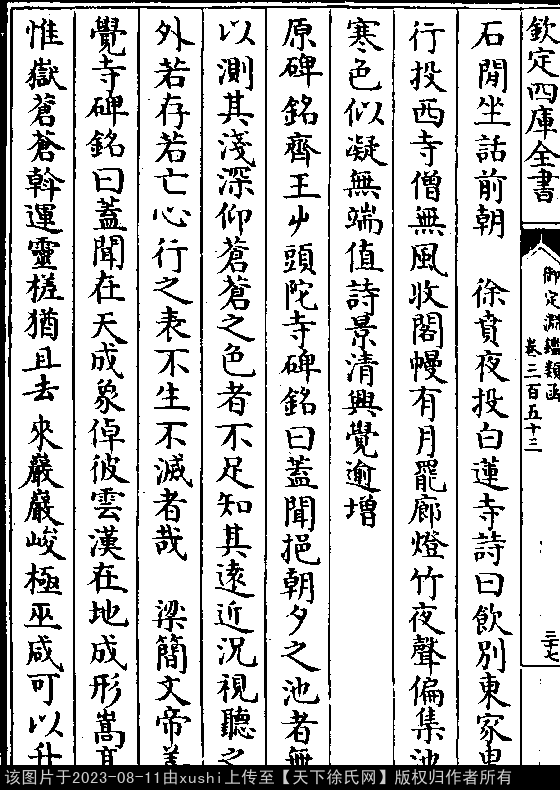 欽定四庫全書
御定淵鑑類函
卷三百五十三
三十七
石閒坐話前朝　徐賁夜投白蓮寺詩曰飲别東家
行投西寺僧無風收閣幔有月罷廊燈竹夜聲偏集池
寒色似凝無端值詩景清興覺逾增
原碑銘齊王屮頭陀寺碑銘曰蓋聞挹朝夕之池者無
以測其淺深仰蒼蒼之色者不足知其遠近況視聽之
外若存若亡心行之表不生不滅者哉　梁簡文帝善
覺寺碑銘曰蓋聞在天成象倬彼雲漢在地成形嵩高
惟嶽蒼蒼斡運靈槎猶且去來巖巖峻極巫咸可以升
该图片于2023-08-11由xushi上传至【天下徐氏网】版权归作者所有